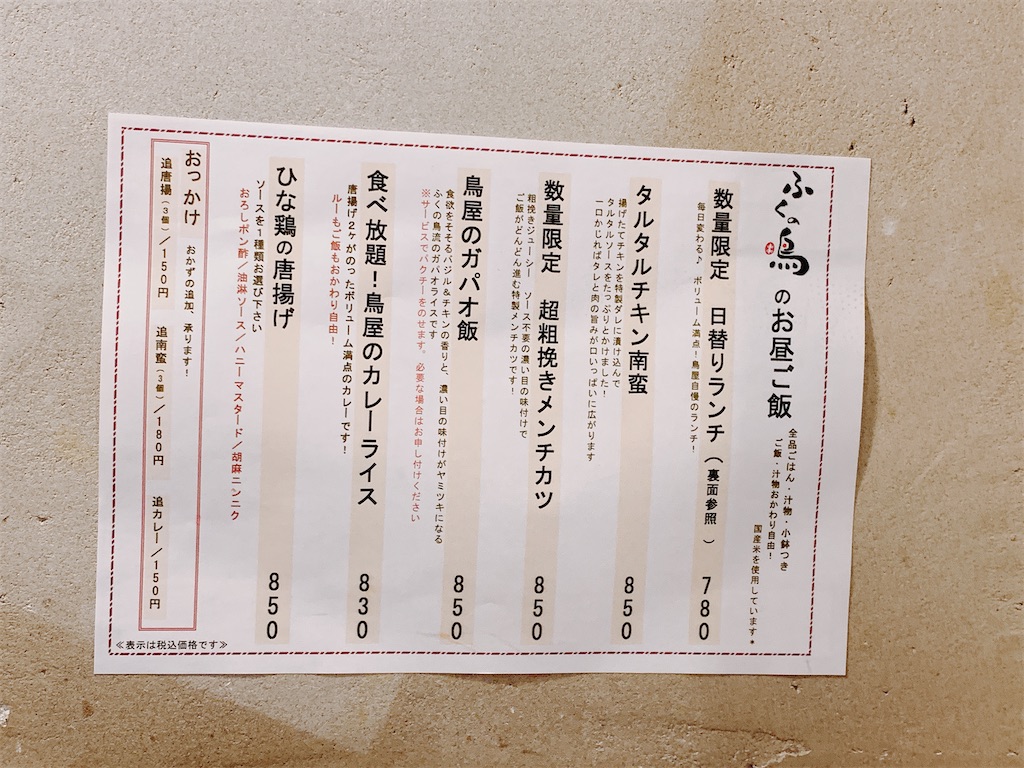 ふくの鳥 のお昼ご飯
全品ごはん・汁物・小鉢つき
ご飯・汁物おかわり自由!
国産米を使用しています*
数量限定 日替りランチ(裏面参照 ) 780
毎日変わる♪ ボリューム満点!鳥屋自慢のランチ!
タルタルチキン南蛮 850
揚げたてチキンを特製ダレに漬け込んで
タルタルソースをたっぷりとかけました!
一口かじればタレと肉の旨みが口いっぱいに広がります
数量限定 超粗挽きメンチカツ 850
粗挽きジューシー ソース不要の濃い目の味付けで
ご飯がどんどん進む特製メンチカツです!
鳥屋のガパオ飯 850
食欲をそそるバジル&チキンの香りと、濃い目の味付けがヤミツキになる
ふくの鳥流のガパオライスです
※サービスでパクチーをのせます。必要な場合はお申し付けください
食べ放題!鳥屋のカレーライス 830
唐揚げ2ヶがのったボリューム満点のカレーです!
ルーもご飯もおかわり自由!
ひな鶏の唐揚げ 850
ソースを1種類お選び下さい
おろしポン酢/油淋ソース/ハニーマスタード/胡麻ニンニク
おっかけ おかずの追加、承ります!
追唐揚(3個)/150円 追南蛮(3個)/180円 追カレー/150円
≪表示は税込価格です≫